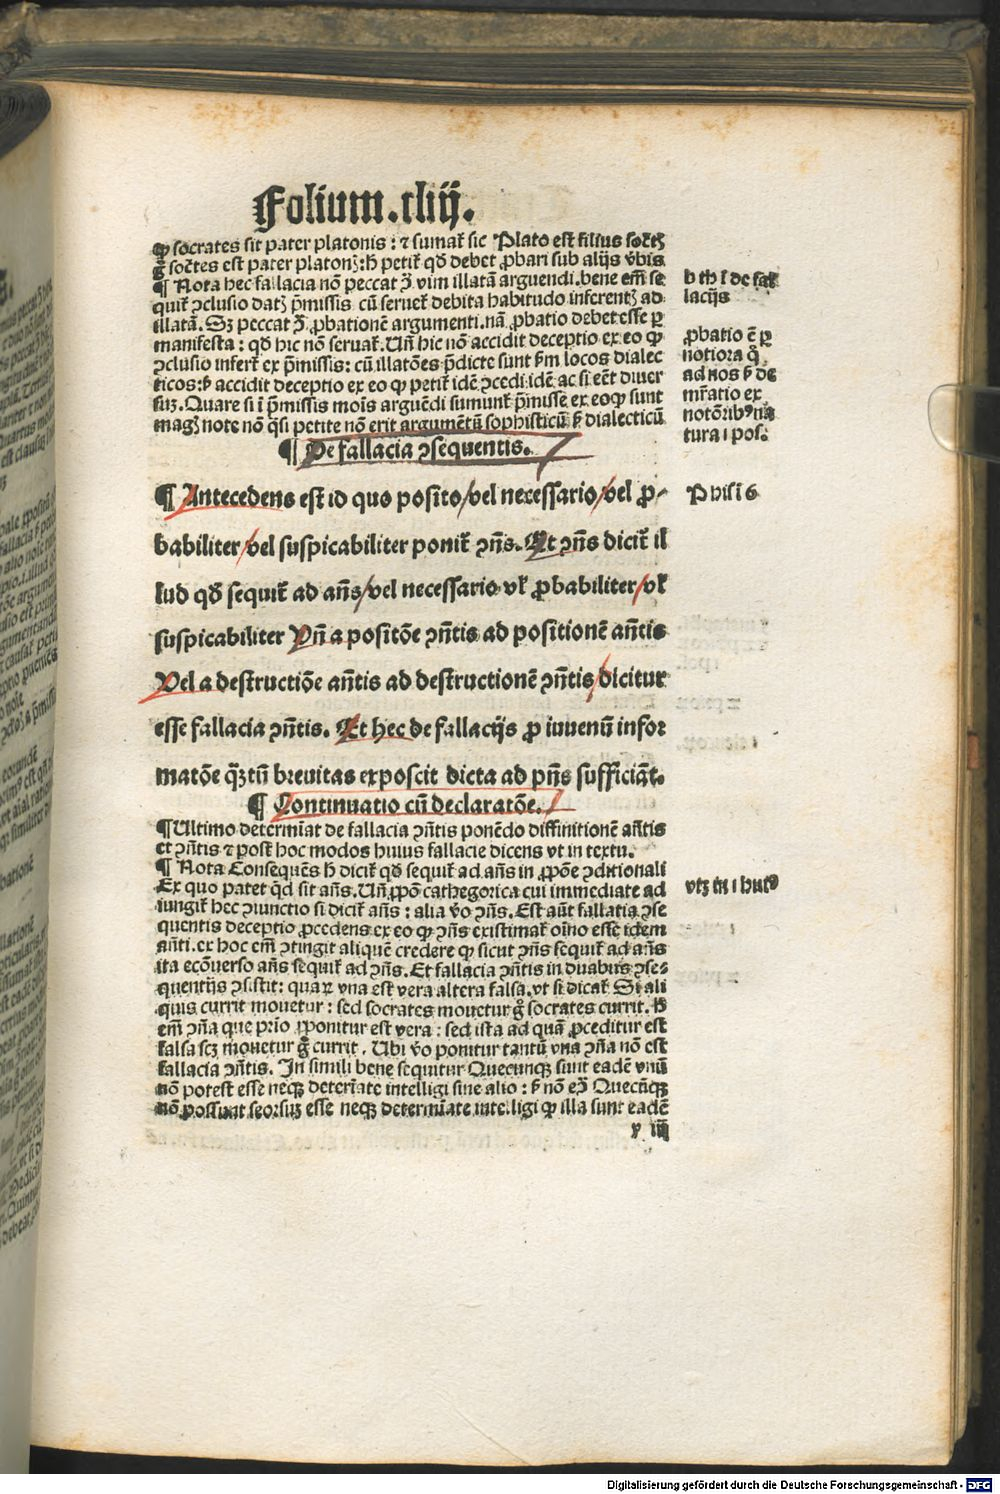 Folium. cliij.
ꝙ socrates sit pater platonis: ⁊ sumat̃ sic Plato est filius socr̃tꝫ
g̊ socr̃tes est pater platonꝫ: h̃ petit̃ qd̃ debet ꝓbari sub alijs v̾bis
¶ Nota hec fallacia nõ peccat ꝯ̃ vim illatã arguendi. bene em̃ se
quit̃ ꝯclusio datꝫ p̃missis cũ seruet̃ debita habitudo inferentꝫ ad
illatã. Sꝫ peccat ꝯ̃ ꝓbationẽ argumenti. nã ꝓbatio debet esse ꝑ
manifesta: qd̃ hic nõ seruat̃. Un̄ hic nõ accidit deceptio ex eo ꝙ
ꝯclusio infert̃ ex p̃missis: cũ illatões p̃dicte sunt ẜm locos dialec
ticos: ẜ accidit deceptio ex eo ꝙ petit̃ idẽ ꝓcedi idẽ ac si eẽt diuer
suꝫ. Quare si ĩ p̃missis mois̃ arguẽdi sumunt̃ p̃misse ex eo ꝙ sunt
magꝫ note nõ q̃si petite nõ erit argumẽtũ sophisticũ ẜ dialecticũ
¶ De fallacia ꝯsequentis.
¶ Antecedens est id quo posito/vel necessario/vel ꝓ-
babiliter/vel suspicabiliter ponit̃ ꝯn̄s. Et ꝯn̄s dicit̃ il
lud qd̃ sequit̃ ad an̄s/vel necessario vl̃ ꝓbabiliter/vl̃
suspicabiliter Vn̄ a positõe ꝯn̄tis ad positionẽ an̄tis
Vel a destructiõe an̄tis ad destructionẽ ꝯn̄tis/dicitur
esse fallacia ꝯn̄tis. Et hec de fallacijs ꝓ iuuenũ infor
matõe q̃ꝫtũ breuitas exposcit dicta ad pn̄s sufficiãt.
¶ Continuatio cũ declaratõe.
¶ Ultimo determĩat de fallacia ꝯn̄tis ponẽdo diffinitionẽ an̄tis
et ꝯn̄tis ⁊ post hoc modos huius fallacie dicens vt in textu.
¶ Nota Consequẽs h̃ dicit̃ qd̃ sequit̃ ad an̄s in ꝓpõe ꝯditionali
Ex quo patet q̃d sit an̄s. Un̄ ꝓpõ cathegorica cui immediate ad
iungit̃ hec ꝯiunctio si dicit̃ an̄s: alia v̾o ꝯn̄s. Est aũt fallatia ꝯse
quentis deceptio ꝓcedens ex eo ꝙ ꝯn̄s existimat̃ oĩno esse idem
an̄ti. ex hoc em̃ ꝯtingit aliquẽ credere ꝙ sicut ꝯn̄s sequit̃ ad an̄s
ita ecõuerso an̄s sequit̃ ad ꝯn̄s. Et fallacia ꝯn̄tis in duabus ꝯse-
quentijs ꝯsistit: quaꝝ vna est vera altera falsa. vt si dicat̃ Si ali
quis currit mouetur: sed socrates mouetur g̊ socrates currit. h̃
em̃ ꝯn̄a que prĩo ꝓponitur est vera: sed ista ad quã ꝓceditur est
falsa scꝫ mouetur g̊ currit. Ubi v̾o ponitur tantũ vna ꝯn̄a nõ est
fallacia ꝯn̄tis. In simili bene sequitur Quecunqꝫ sunt eadẽ vnũ
nõ potest esse neqꝫ determĩate intelligi sine alio: ẜ nõ eꝯ̃ Quecũqꝫ
nõ possunt seorsuꝫ esse neqꝫ determĩate intelligi ꝙ illa sunt eadẽ
lacijs
ꝓbatio ẽ ꝑ
notiora q̊
ad nos ẜ de
mr̃atio ex
tura i pos.
Digitalisierung gefördert durch die Deutsche Forschungsgemeinschaft - DFG